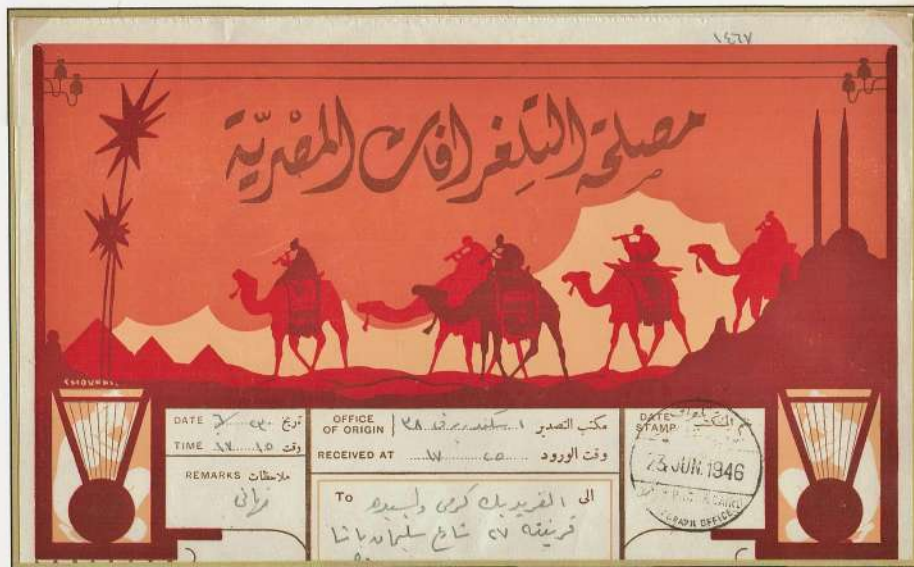 ٨٤٣١
مصلحة التلغرافات المصرية
DATE ٢٣/٦ تاريخ
TIME ١٧ ١٥ وقت
REMARKS ملاحظات
تهاني
OFFICE OF ORIGIN مكتب التصدير
RECEIVED AT ١٧ ٤٥ وقت الورود
DATE STAMP
23 JUN. 1946
GRAPH OFFICE
To الى الفريد بك كرمى والسيده
قرينته ٢٧ شارع سليمان باشا